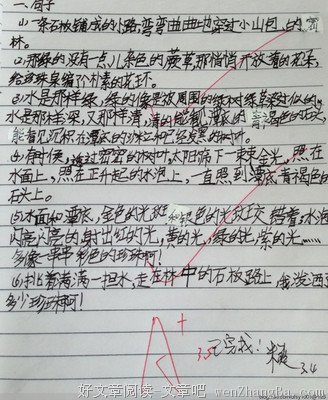 一、句子
(1)一条石板铺成的小路,弯弯曲曲地穿过小山包的密
林。
(2)那绿的没有一点儿杂色的蕨草,那悄悄开放着的花朵,
给珍珠泉编了朴素的花环。
(3)水是那样绿,绿的像是被周围的绿树绿草染过似的,
水是那样深,又那样清,清的能看见潭底的青褐色的石头,
能看见沉积在潭底的沙粒和已经发黑的树叶。
(4)有时候,透过密密的树叶,太阳筛下一束束金光,照在
水面上,照在正升起的水泡上,一直照到潭底青褐色的
石头上。
(5)水面和潭底,金色的光斑和银色的光斑交错着;水泡
闪亮闪亮的射出红的光,黄的光,绿的光,紫的光……
多像一串串彩色的珍珠啊!
(6)挑着满满一担水,走在林中的石板路上,我洒下
多少珍珠啊!
A+
3.5
3.4
好文章阅读-文章吧 wenZhangBa.com